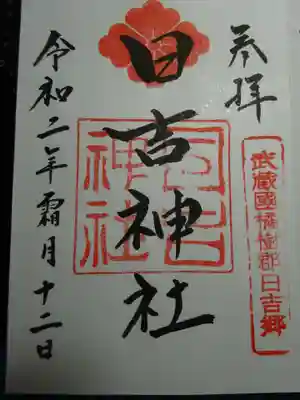 奉拝
武蔵國橘樹郡日吉郷
日吉神社
日吉神社
令和二年霜月十二日